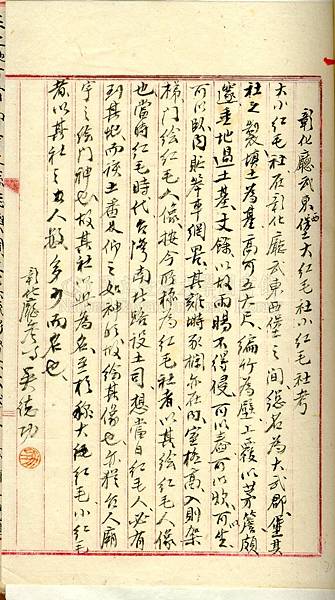 彰化廳武東西堡大紅毛社小紅毛社考
大小紅毛社在彰化廳武東西堡之間總名為大武郡堡其
社之製填土為基高可五六尺編竹為壁上覆以茅簷頗
邃垂地過土基丈餘以故雨暘不得侵可以舂可以炊可坐
可以臥內貯笨車網罟雞塒豕欄亦在內室極高入則架
梯門繪紅毛人像按今所稱為紅毛社者以其繪紅毛人像
也當時紅毛時代台灣南北路設土司想當日紅毛人必有
到其地而該土番見仰之如神明故繪其像也亦猶台人廟
宇之繪門神也故其社以此為名至於稱大紅毛小紅毛
者以其社之土人數多少而名也
彰化廳參事吳德功